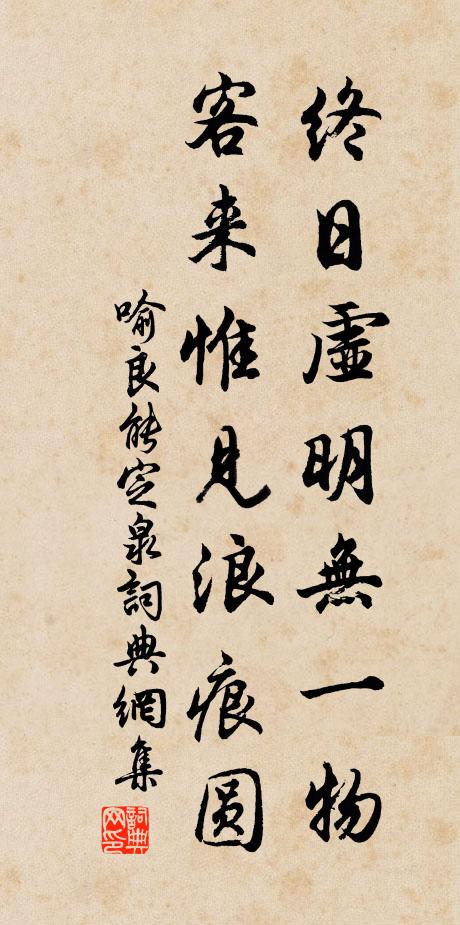 终日虛明無一物
客来惟见浪痕圆
喻良能定泉詞典網集
詞典网印